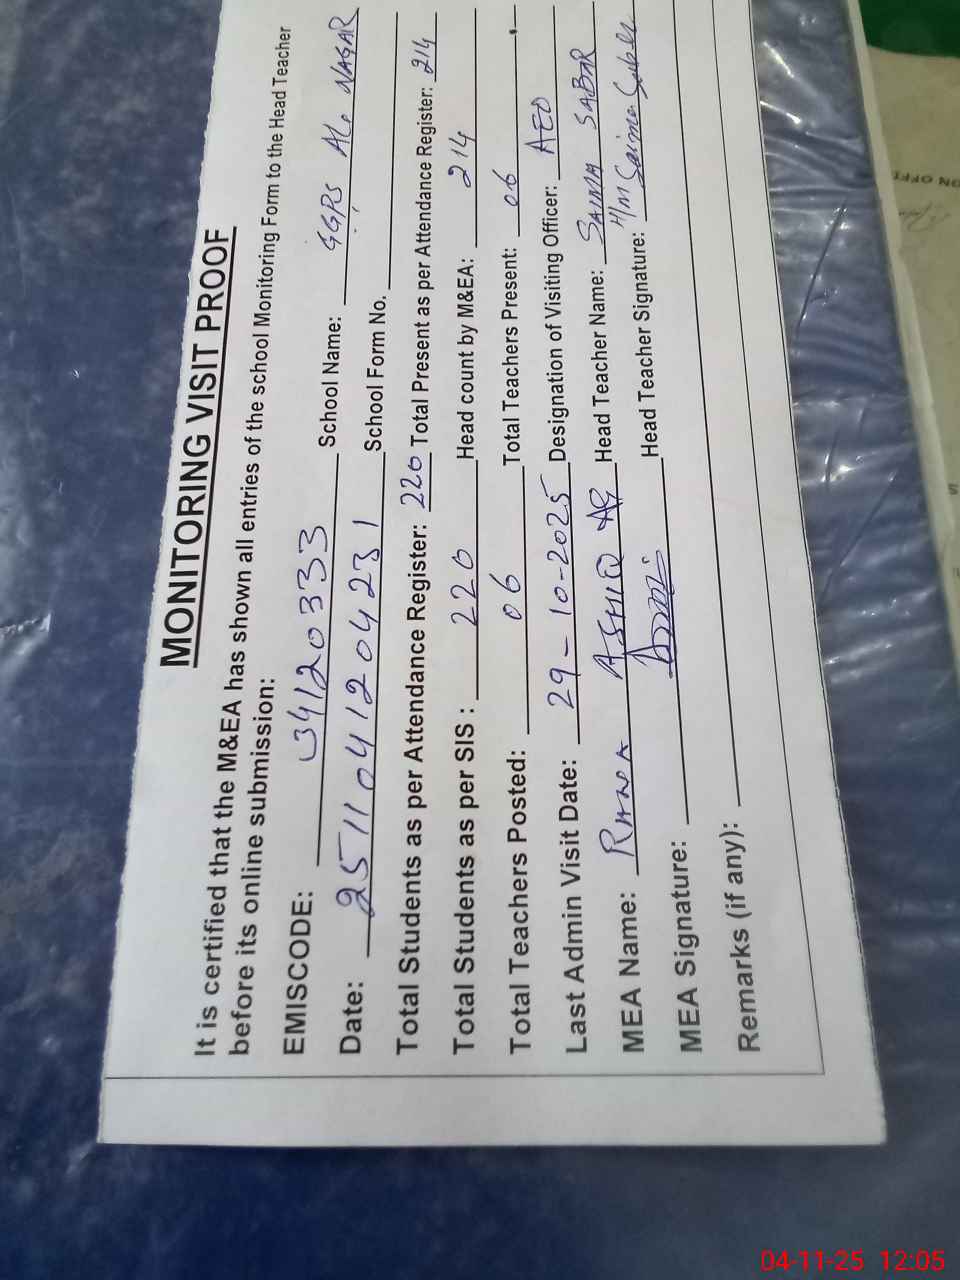 MONITORING VISIT PROOF
It is certified that the M&EA has shown all entries of the school Monitoring Form to the Head Teacher
before its online submission:
EMISCODE: 34120333 School Name: GGPS Ali NAGAR
Date: 251104120 4231 School Form No.
Total Students as per Attendance Register: 220 Total Present as per Attendance Register: 214
Total Students as per SIS : 220 Head count by M&EA: 214
Total Teachers Posted: 06 Total Teachers Present: 06
Last Admin Visit Date: 29-10-2025 Designation of Visiting Officer: AEO
MEA Name: RANA ASHIQ Head Teacher Name: SAIMA SABAR
MEA Signature: Head Teacher Signature: H/M Saima
Remarks (if any):
04-11-25 12:05